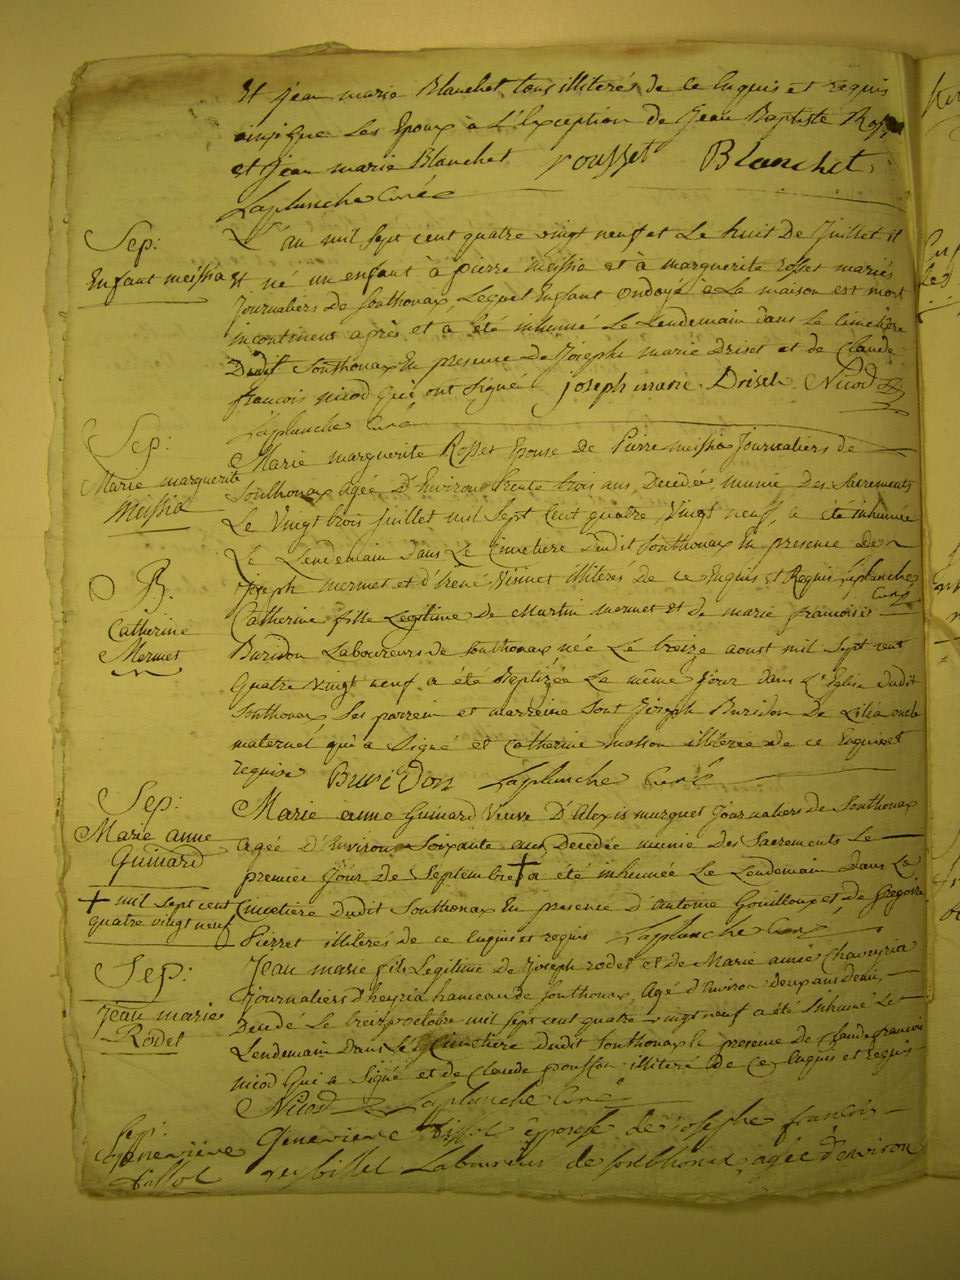 Et Jean marie Blanchet, tous illiterés de ce Enquis et requis
ainsi que Les Epoux à L'Exception de Jean Baptiste
et Jean marie Blanchet rousset Blanchet
Laplanche Curé
Sep:
Enfant meissia
L'an mil Sept cent quatre vingt neuf et Le huit De Juillet
Et né un enfant à pierre meissia et à marguerite rosset mariés
Journaliers De Sonthonax, Lequel Enfant Ondoyé à La maison est mort
incontinent après et à été inhumé Le Lendemain dans Le Cimetière
Dudit Sonthonax En presence De Joseph marie Driset et de Claude
francois nicod Qui ont Signé joseph marie Driset Nicod
Laplanche Curé
Sep:
Marie marguerite
Meissia
Marie marguerite Rosset Epouse De Pierre meissia Journaliers de
Sonthonax agée D'Environ trente trois ans, Decedée munie Des Sacrements
Le Vingt trois juillet mil Sept Cent quatre Vingt neuf, a été inhumée
Le Lendemain dans Le Cimetiere Dudit Sonthonax En presence De
Joseph mermet et d'Irené illiterés De ce Enquis et Requis Laplanche
Curé
B.
Catherine
Mermet
Catherine fille Legitime De Martin mermet et de marie francoise
Buridon Laboureurs de Sonthonax née Le treize aoust mil Sept cent
quatre vingt neuf a été Baptizée Le même Jour dans L'Eglise dudit
Sonthonax Ses parrein et marreine Sont Joseph Buridon De oncle
maternel qui a Signé et Catherine masson illiterée de ce Enquise et
requise Buridon Laplanche Curé
Sep:
Marie anne
Guinard
Marie anne Guinard Veuve D'Alexis murguet Journaliers de Sonthonax
agée d'Environ Soixante ans Decedée munie Des Sacrements Le
premier Jour De Septembre + a été inhumée Le Lendemain dans Le
+ mil Sept cent
quatre vingt neuf
Cimetiere Dudit Sonthonax En presence d'antoine Gouilloux et de Gregoire
Pierret illiterés de ce Enquis et requis Laplanche Curé
Sep:
Jean marie
Rodet
Jean marie fils Legitime De Joseph rodet et De Marie aimée Chaveyria
Journaliers D'heyria hameau de Sonthonax, Agé d'Environ deux ans Demi,
Decedé Le treize octobre mil Sept cent quatre vingt neuf a été Inhumé Le
Lendemain Dans Le Cimetiere Dudit Sonthonax En presence De Claude francois
nicod Qui a Signé et de Claude illiteré de Ce Enquis et Requis
Nicod Laplanche Curé
Sep:
Genevieve
Genevieve epouse de joseph francois
Laboureurs de Sonthonax, agée d'environ